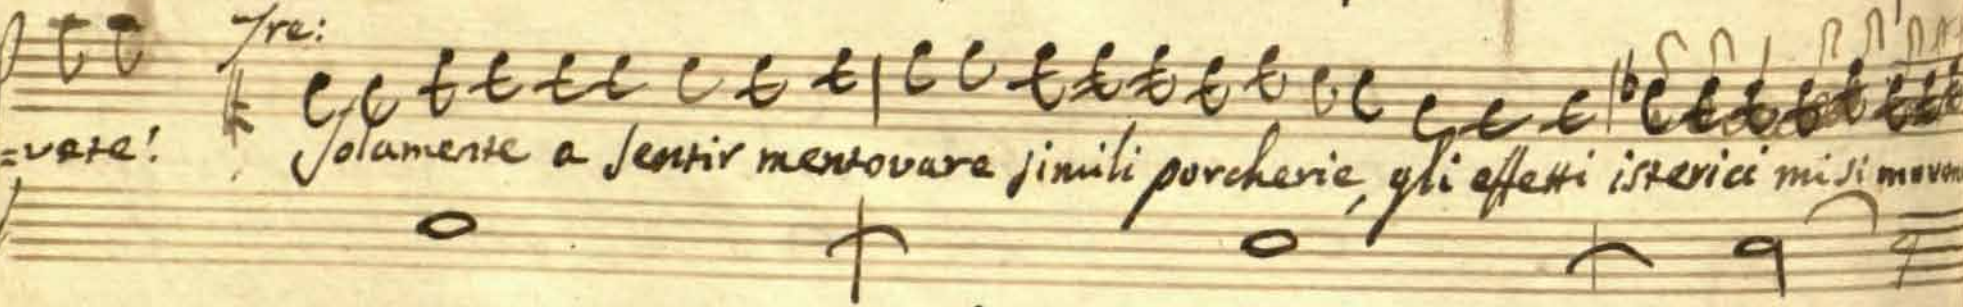 Tre:
=vate! Solamente a sentir mentovare simili porcherie, gli effetti isterici mi si movon